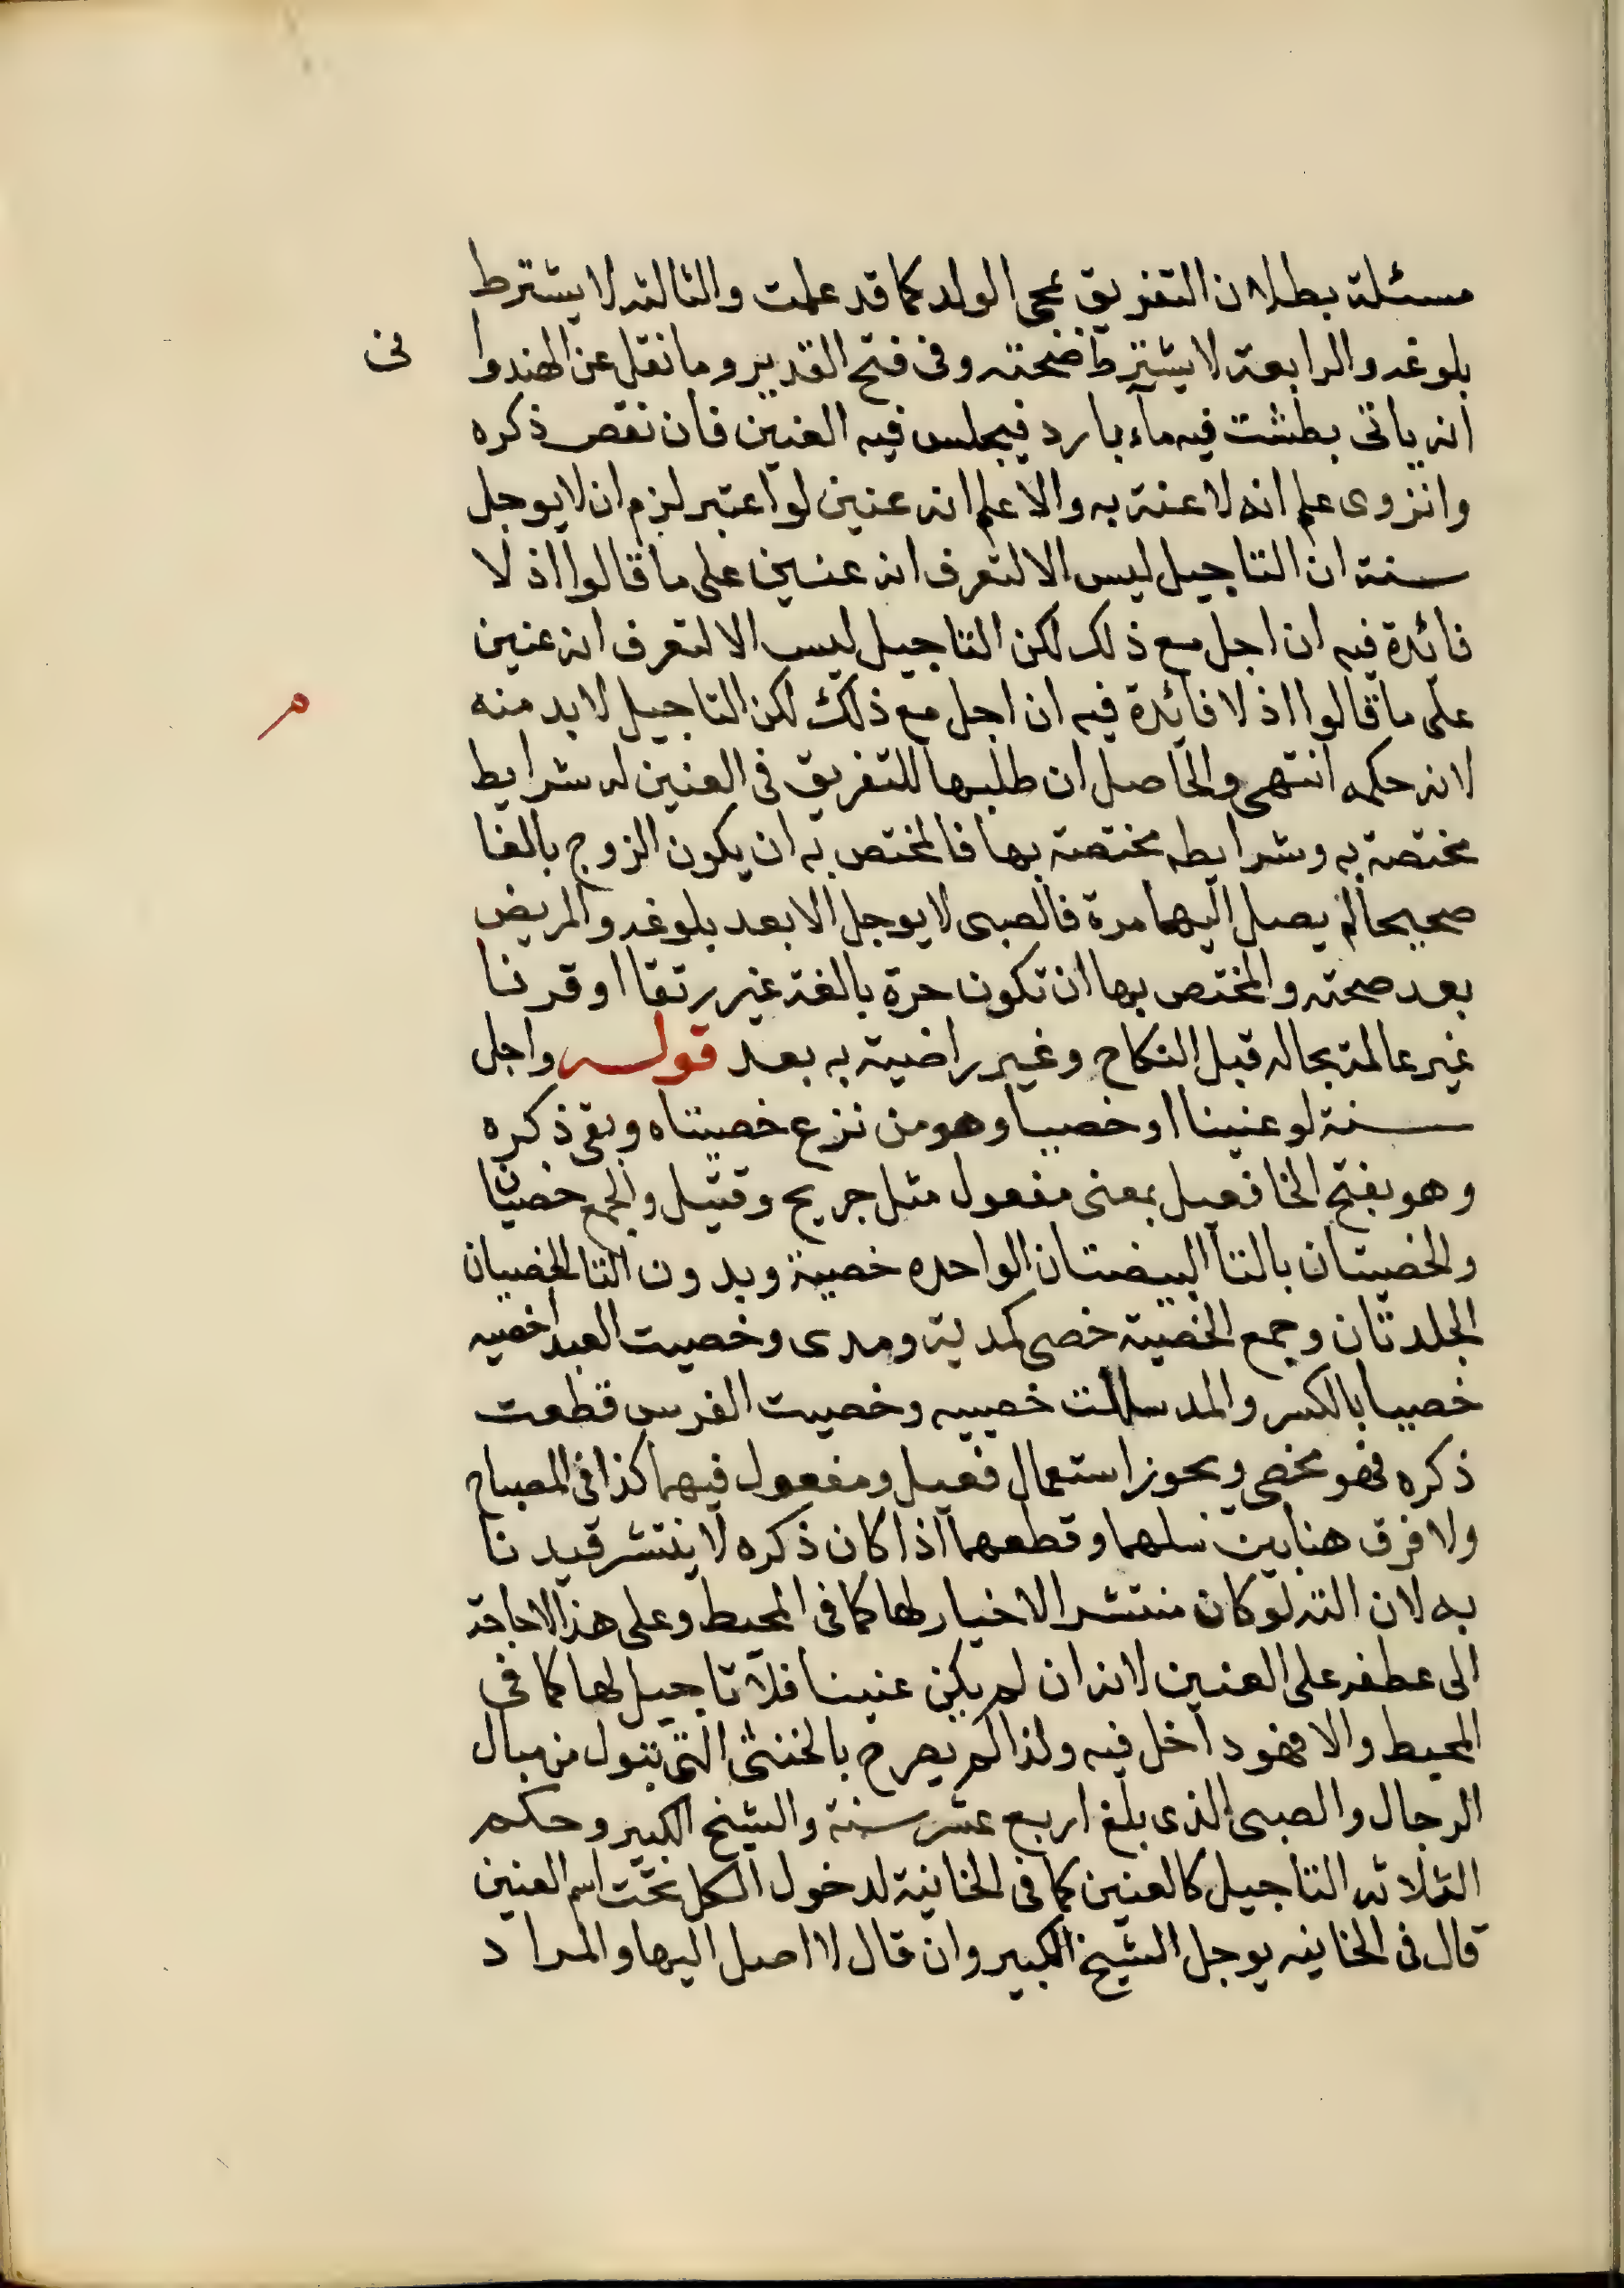 مسئلة بطلان التفريق بمجى الولد كما قد علمت والثالثه لا يشترط
بلوغه والرابعة لا يشترط صحته وفى فتح القدير وما نقل عن الهندوا
نى
انه ياتى بطشت فيه ماء بارد فيجلس فيه العنين فان نقص ذكره
وانزوى علم انه لا عنة به والا علم انه عنين لو اعتبر لزم ان لا يوجل
سنة ان التاجيل ليس الا لتعرف انه عنين على ما قالوا اذ لا
فائدة فيه ان اجل مع ذلك لكن التاجيل ليس الا لتعرف انه عنين
على ما قالوا اذ لا فائدة فيه ان اجل مع ذلك لكن التاجيل لابد منه
م
لانه حكمه انتهى والحاصل ان طلبها للتفريق فى العنين له شرايط
مختصة به وشرايطه مختصة بها فالمختص به ان يكون الزوج بالغا
صحيحا لم يصل اليها مرة فالصبى لا يوجل الا بعد بلوغه والمريض
بعد صحته والمختص بها ان تكون حرة بالغة غير رتقا او قرنا
غير عالمة بحاله قبل النكاح وغير راضية به بعد قوله واجل
سنة لو عنينا او خصيا وهو من نزع خصيتاه وبقى ذكره
وهو بفتح الخا فعيل بمعنى مفعول مثل جريح وقتيل والجمع خصيان
والخصيتان بالتا البيضتان الواحده خصية وبدون التا الخصيان
الجلدتان وجمع الخصية خصى كمدية ومدى وخصيت العبد اخصيه
خصيا بالكسر والمد سللت خصييه وخصيت الفرس قطعت
ذكره فهو مخصى ويجوز استعمال فعيل ومفعول فيهما كذا فى المصباح
ولا فرق هنا بين سلهما وقطعهما اذا كان ذكره لا ينتشر قيدنا
به لان النه لو كان منتشر الاخيار لها كما فى المحيط وعلى هذا لا حاجة
الى عطفه على العنين لانه ان لم يكن عنينا فلا تاجيل لها كما فى
المحيط والا فهو داخل فيه ولذا لم يصرح بالخنثى التى تبول من مبال
الرجال والصبى الذى بلغ اربع عشر سنة والشيخ الكبير وحكم
الثلاثه التاجيل كالعنين كما فى الخانية لدخول الكل تحت اسم العنين
قال فى الخانيه يوجل الشيخ الكبير وان قال لا اصل اليها والمراد